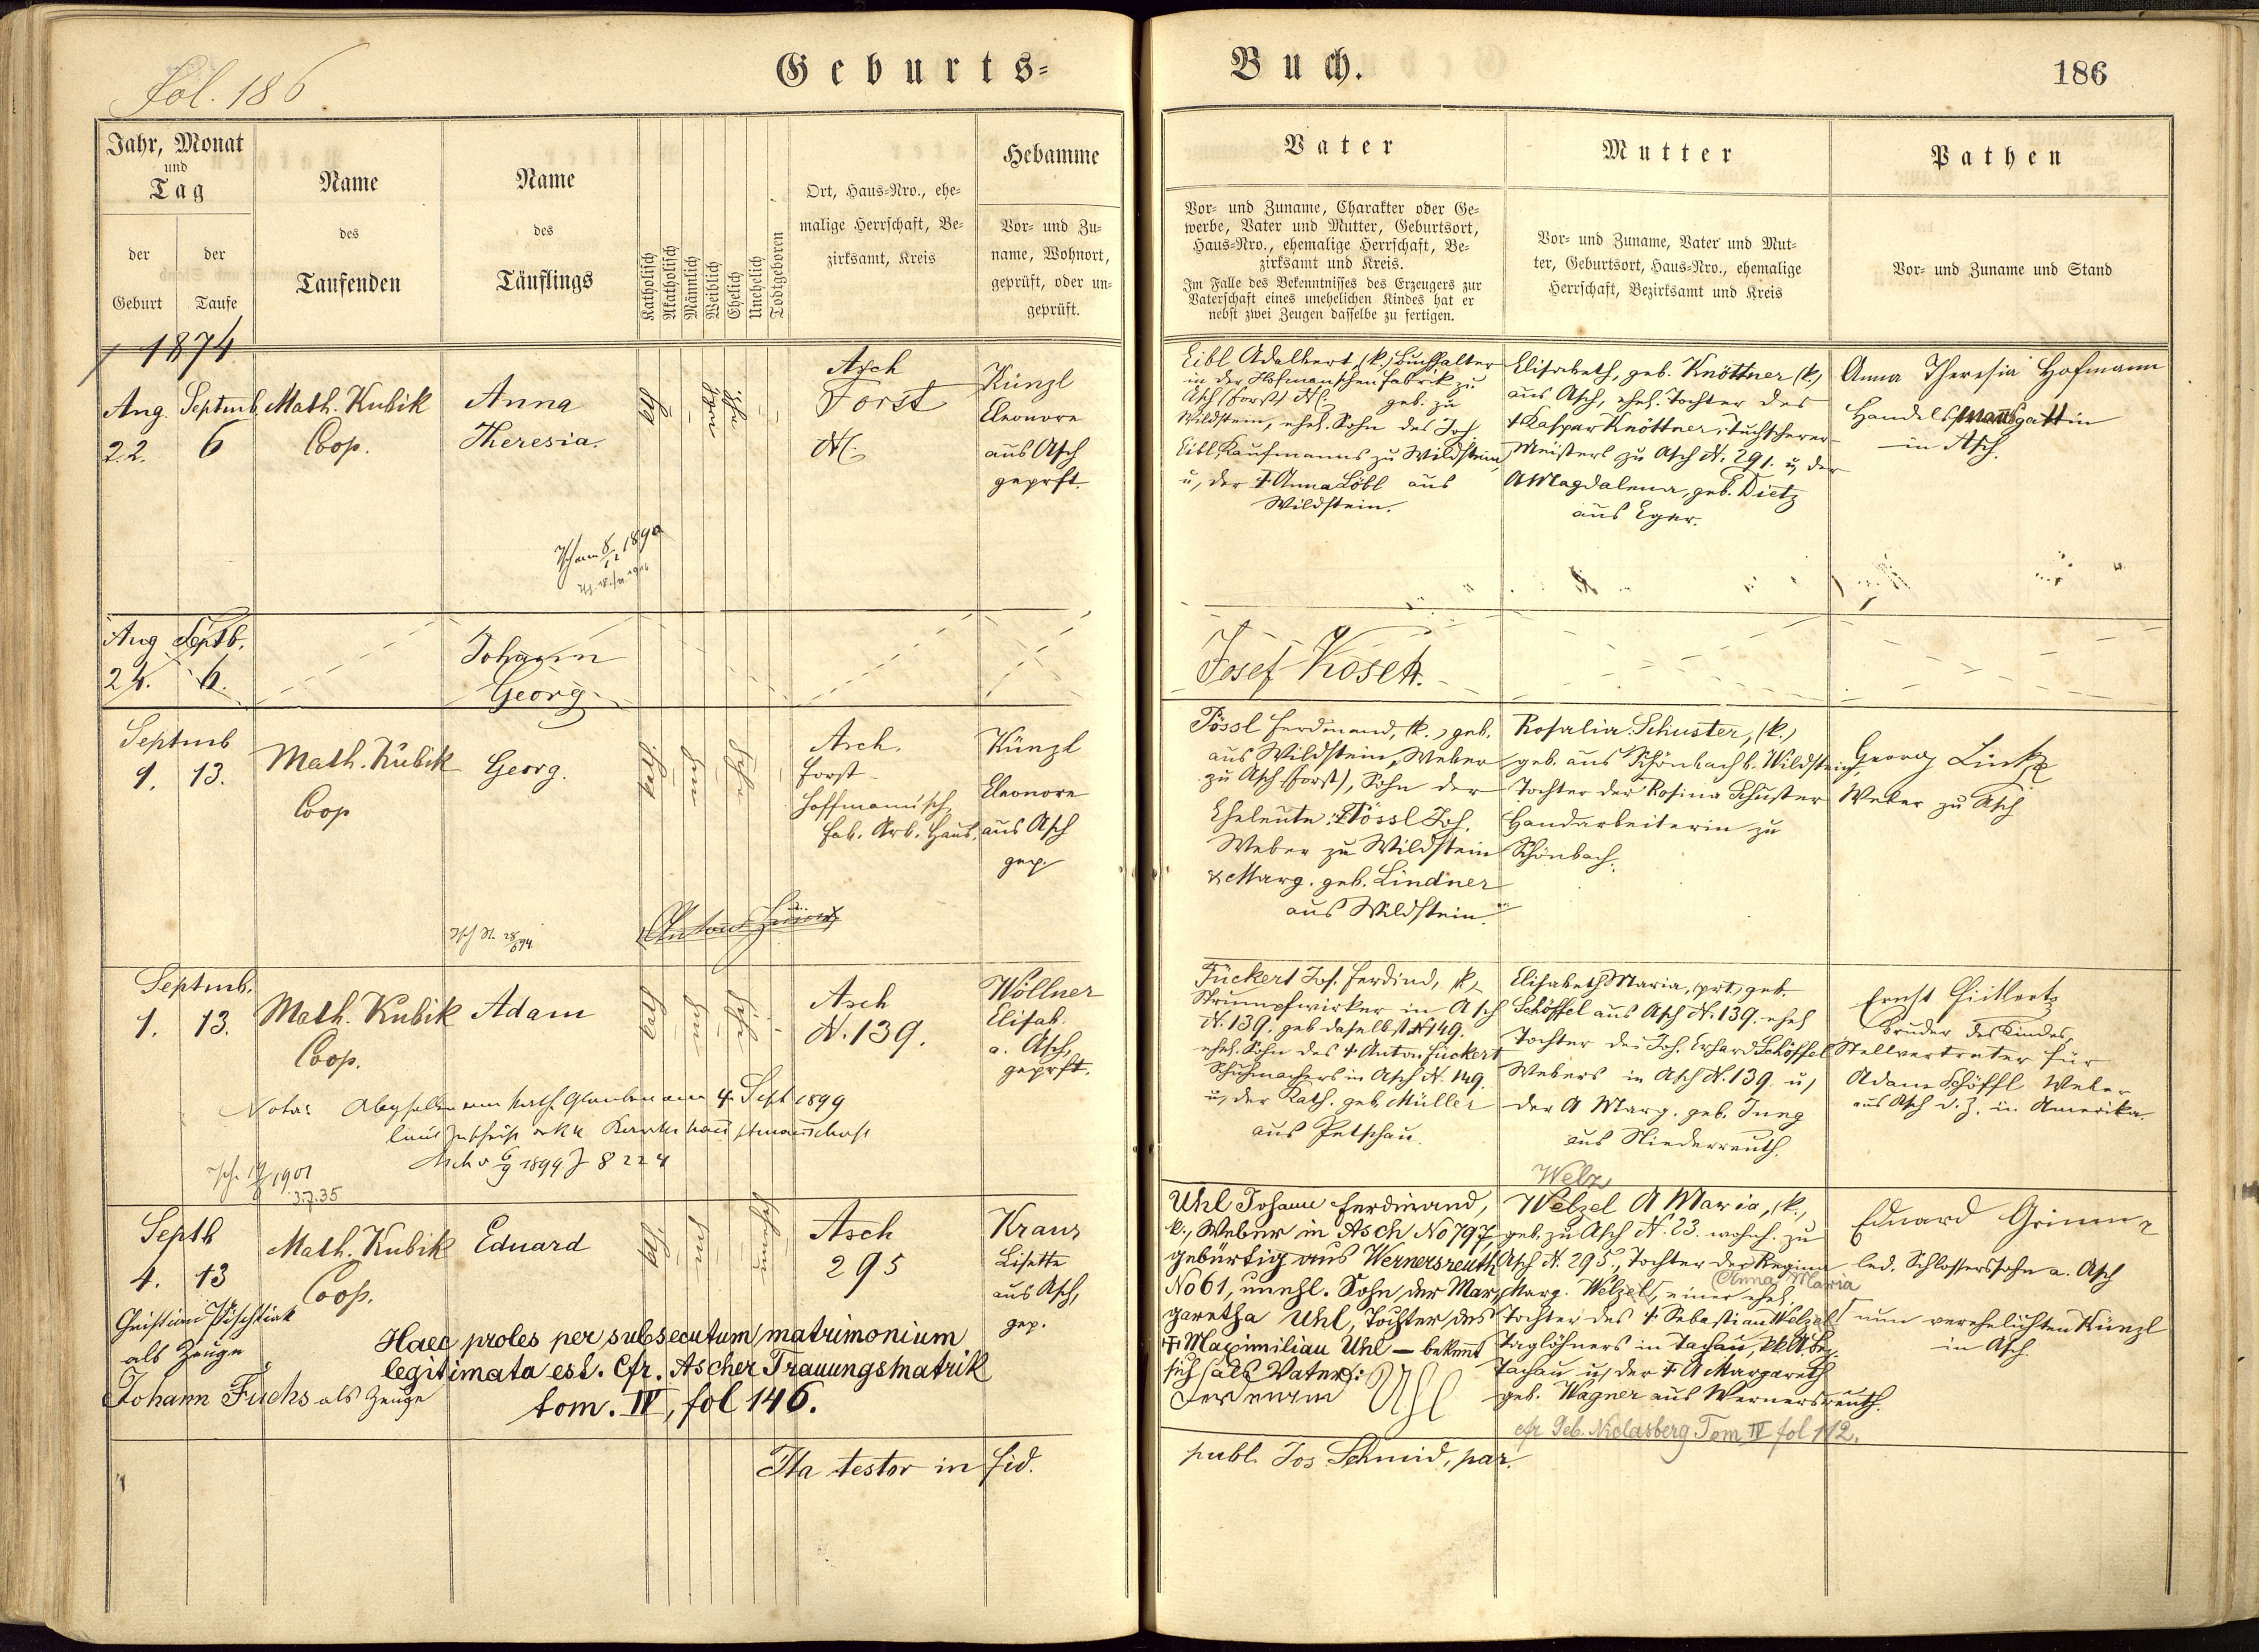 Fol. 186
Geburts=
Jahr, Monat
und
Tag
der
Geburt
der
Taufe
Name
des
Taufenden
Name
des
Täuflings
Katholisch
Akatholisch
Männlich
Weiblich
Ehelich
Unehelich
Todtgeboren
Ort, Haus=Nro., ehe=
malige Herrschaft, Be=
zirksamt, Kreis
Hebamme
Vor= und Zu=
name, Wohnort,
geprüft, oder un=
geprüft.
1874
Aug. Septmb.
22. 6
Math. Kubik
Coop.
Anna
Theresia.
Asch
Forst
N:
Künzl
Eleonore
aus Asch
geprft.
Aug Septb.
24. 6.
Johann
Georg
Septmb
1. 13.
Math. Kubik
Coop
Georg.
Asch.
Forst
Hoffmannisch
Fab. Arb. Haus.
Künzl
Eleonore
aus Asch
gep.
Septmb.
1. 13.
Math. Kubik
Coop.
Adam
Asch
N. 139.
Wöllner
Elisab.
a. Asch,
geprft.
Nota: Abgefallen vom kath. Glauben am 4. Sept 1899
Asch v 6/9 1899 Z 8224
3.7.35
Septb
4. 13
Math. Kubik
Coop.
Eduard
Asch
295
Kraus
Lisette
aus Asch,
gep.
als Zeuge
Johann Fuchs als Zeuge
Haec proles per subsecutum matrimonium
legitimata est. Cfr. Ascher Trauungsmatrik
tom. IV, fol 146.
Ita testor in fid.
Buch.
186
Vater
Vor= und Zuname, Charakter oder Ge=
werbe, Vater und Mutter, Geburtsort,
Haus=Nro., ehemalige Herrschaft, Be=
zirksamt und Kreis.
Im Falle des Bekenntnisses des Erzeugers zur
Vaterschaft eines unehelichen Kindes hat er
nebst zwei Zeugen dasselbe zu fertigen.
Mutter
Vor= und Zuname, Vater und Mut=
ter, Geburtsort, Haus=Nro., ehemalige
Herrschaft, Bezirksamt und Kreis
Pathen
Vor= und Zuname und Stand
Eibl Adalbert, (k.) Buchhalter
in der Hofmanschen Fabrik zu
Asch (Forst) N: geb. zu
Wildstein, ehel. Sohn des Jos.
Eibl, Kaufmanns zu Wildstein,
u, der † Anna Löbl aus
Wildstein.
Elisabeth, geb. Knöttner (k.)
aus Asch, ehel. Tochter des
† Kaspar Knöttner, Tuchscherer-
Meisters zu Asch N. 291. u, der
A Magdalena, geb. Dietz
aus Eger.
Anna Theresia Hofmann
Handelsmannsgattin
in Asch.
Josef Kosch.
Pössl Ferdinand, (k.) geb.
aus Wildstein, Weber
zu Asch (Forst), Sohn der
Eheleute: Pössl Joh.
Weber zu Wildstein
& Marg. geb. Lindner
aus Wildstein.
Rosalia Schuster, (k.)
geb. aus Schönbach b. Wildstein,
Tochter der Rosina Schuster
Handarbeiterin zu
Schönbach.
Georg Link
Weber zu Asch
Fückert Jos. Ferdind, (k.)
Strumpfwirker in Asch
N. 139. geb daselbst N 149.
ehel. Sohn des † Anton Fückert
Schuhmachers in Asch N. 149.
u, der Kath. geb. Müller
aus Petschau.
Elisabeth Maria, (prt.) geb.
Schöffel aus Asch N. 139. ehel
Tochter des Joh. Erhard Schöffel
Webers in Asch N. 139. u,
der A Marg. geb. Jung
aus Niederreuth.
Ernst Fückert
Bruder des Kindes,
Stellvertreter für
Adam Schöffl Weber
aus Asch d. Z. in Amerika.
Uhl Johann Ferdinand,
k., Weber in Asch No 797,
gebürtig aus Wernersreuth
No 61, unehl. Sohn der Mar=
garetha Uhl, Tochter des
† Maximilian Uhl — bekennt
sich als Vater:
Ferdinand Uhl
Welz
Welzel A Maria, (k.,
geb. zu Asch N. 23. wohnh. zu
Asch N. 295., Tochter der Regina
(Anna Maria
Marg. Welzel, einer ehel.
Tochter des † Sebastian Welzel
Taglöhners in Tachau,
Tachau u, der † A Margareth
geb. Wagner aus Wernersreuth.
cfr Geb. Niclasberg Tom IV fol 112.
Eduard Grimm
led. Schlosserssohn a. Asch
nun verehelichten Künzl
in Asch.
publ. Jos. Schmid, par.